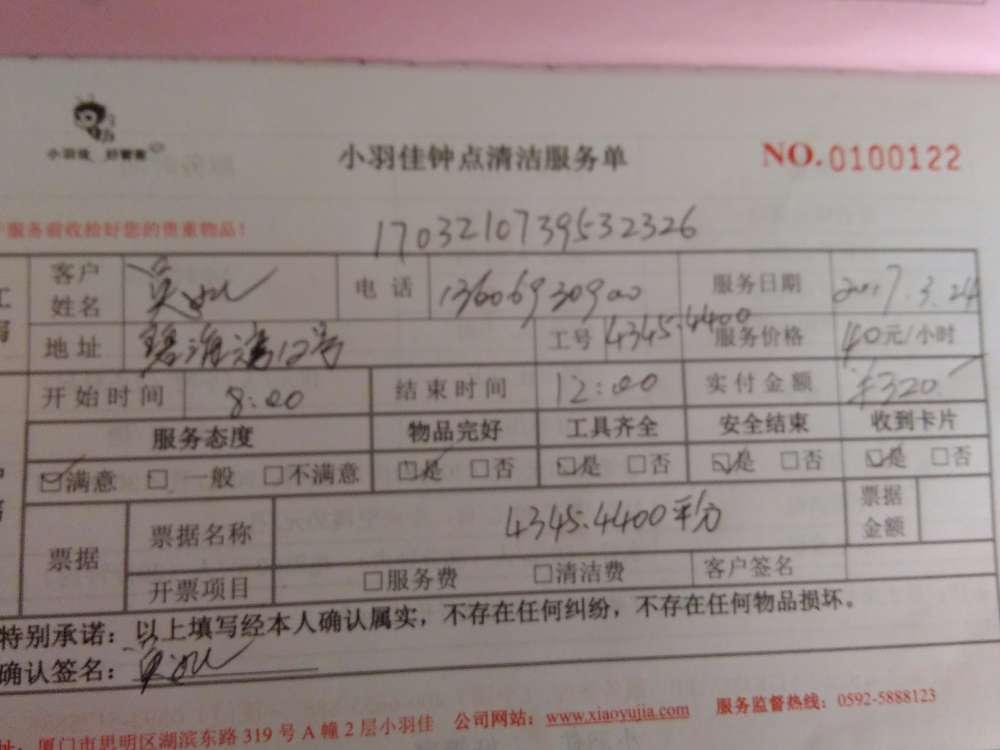 小羽佳 好管家
小羽佳钟点清洁服务单
NO.0100122
服务前收拾好您的贵重物品!
1703210739532326
客户姓名 电话 13606930900 服务日期 2017.3.24
地址 12号 工号 4345.4400 服务价格 40元/小时
开始时间 8:00 结束时间 12:00 实付金额 ¥320
服务态度 物品完好 工具齐全 安全结束 收到卡片
☑满意 □一般 □不满意 ☑是 □否 ☑是 □否 ☑是 □否 ☑是 □否
票据 票据名称 4345.4400平分 票据金额
开票项目 □服务费 □清洁费 客户签名
特别承诺:以上填写经本人确认属实,不存在任何纠纷,不存在任何物品损坏。
确认签名:
址:厦门市思明区湖滨东路 319 号 A 幢 2 层小羽佳 公司网站:www.xiaoyujia.com 服务监督热线:0592-5888123